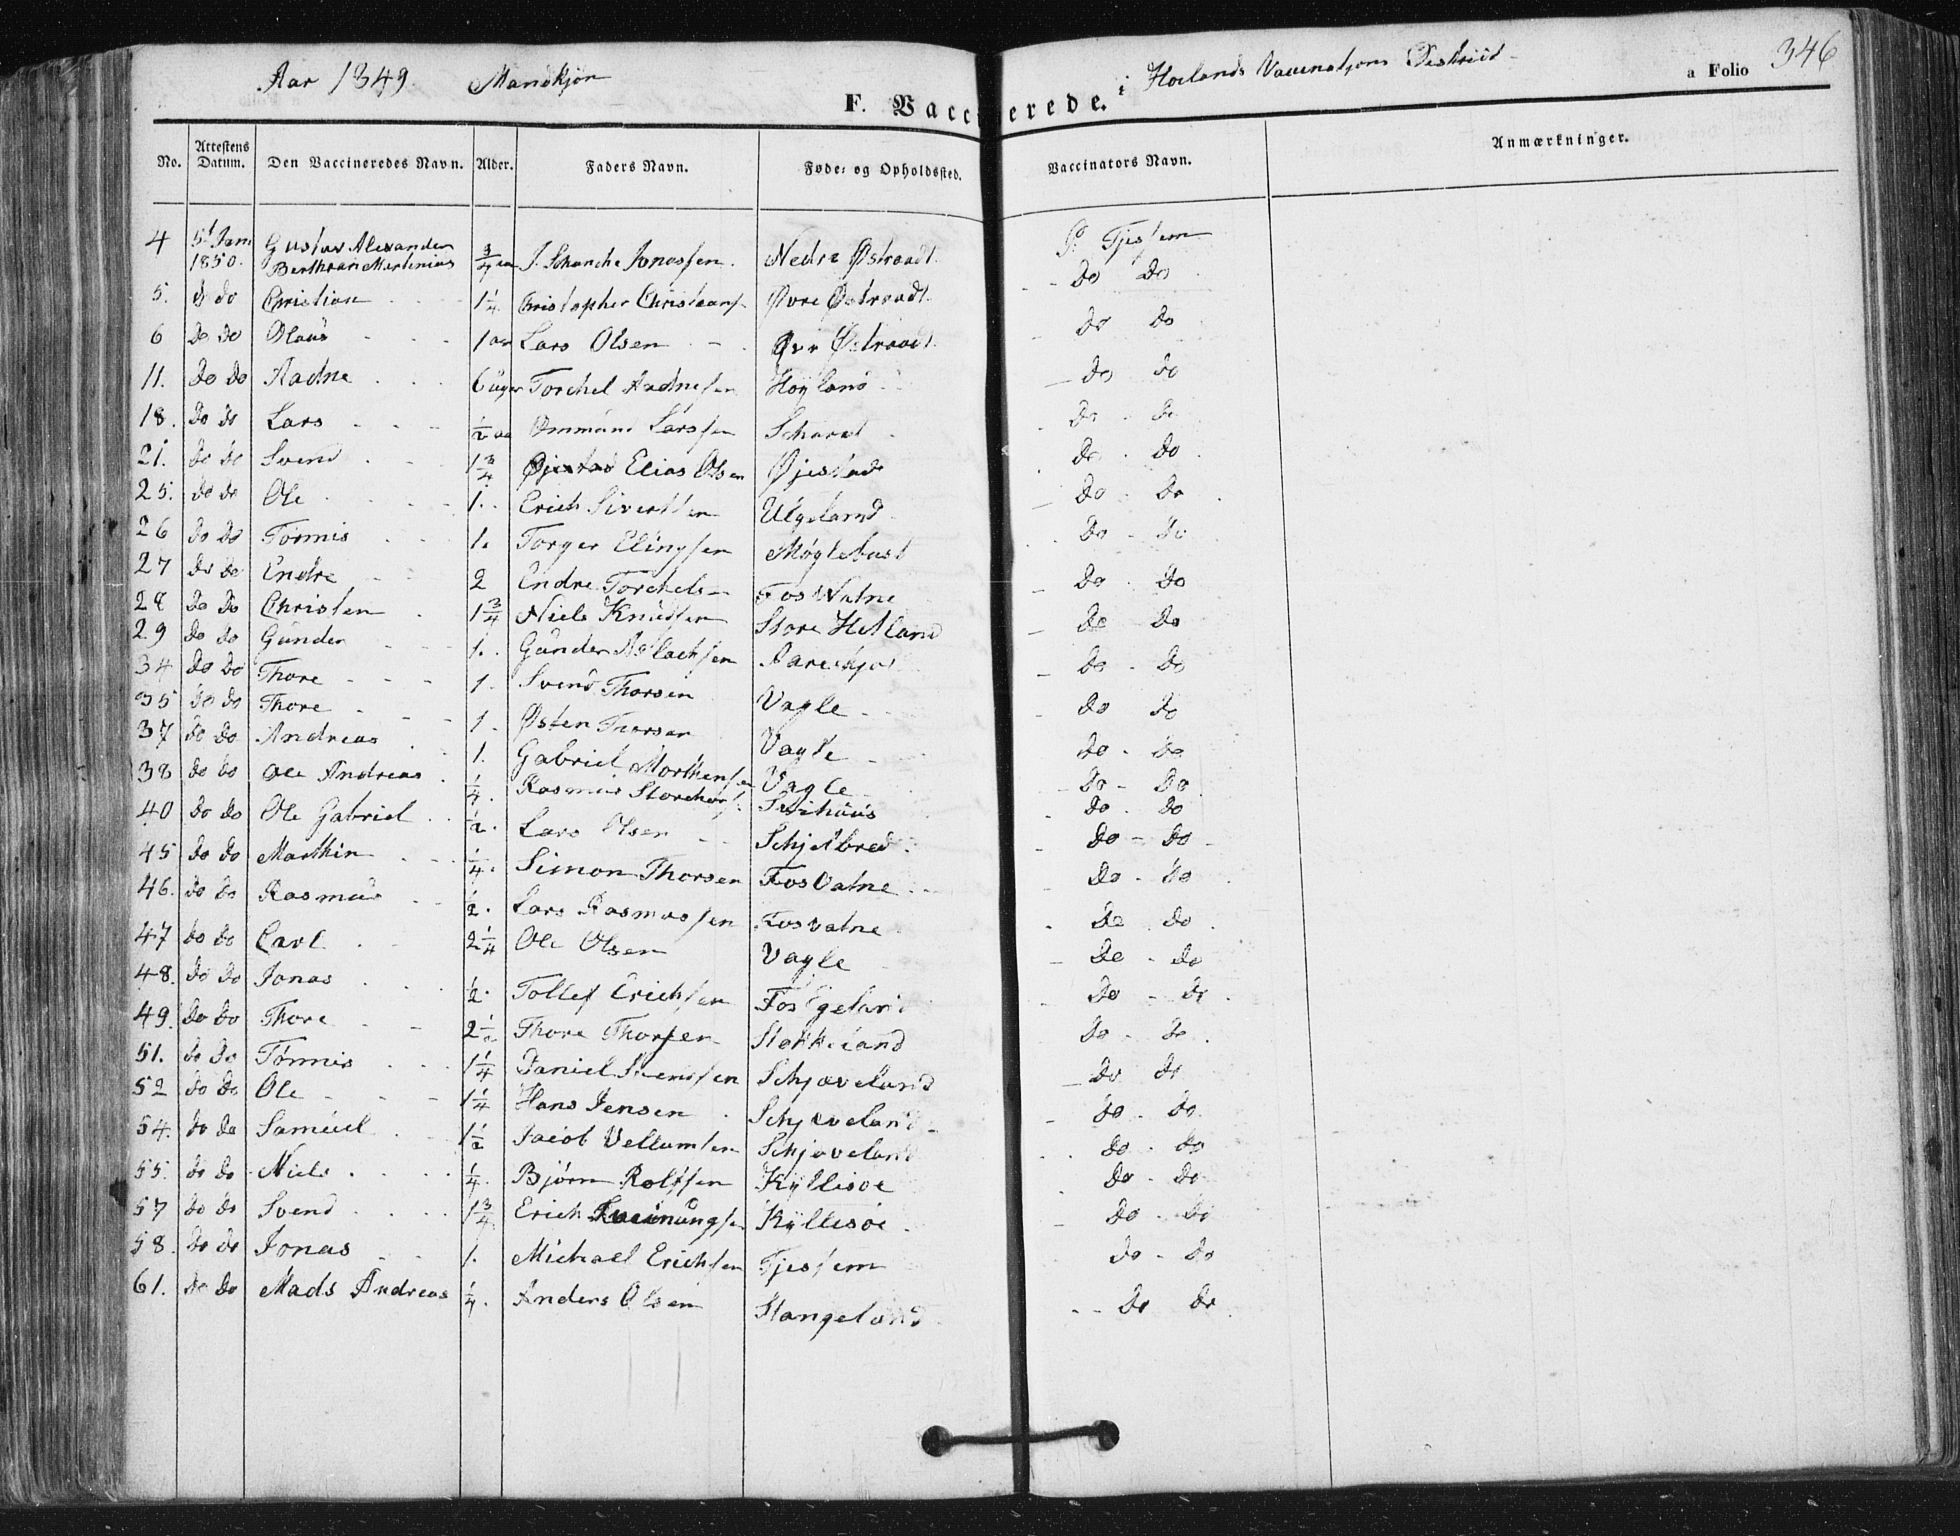 Aar 1849. Mandkjøn
F. Vaccinerede. i Hoilands Vaccinations District
a Folio 346
No. Attestens Datum. Den Vaccineredes Navn. Alder. Faders Navn. Føde- og Opholdssted. Vaccinators Navn. Anmærkninger.
4 5t Jan 1850. Gustav Alexander Berthran Martinius 3/4 aar J. Schanche Jonassen. Nedre Østraadt P. Tjessem
5. do do Christian 1 1/4. Christopher Christians. Øvre Østraadt. Do Do
6 Do Do Olaus 1 aar Lars Olsen Øvr Østraadt Do Do
11. Do Do Aadne 6 uger Torchel Aadnessen Høyland Do Do
18. Do do Lars 1/2 aa Ommund Larssen Scharad Do Do
21. Do do Svend 1 3/4 Elias Olsen Øjestad Do Do
25. do do Ole 1. Erich Sivertsen Uelgeland Do Do
26 do do Tormis 1. Torger Elingsen Møglebust Do Do
27 do do Endre 2 Endre Torchels Fos Vatne Do Do
28 Do Do Christen 1 3/4 Niels Knudsen Store Hetland Do Do
29 do do Gunder 1. Gunder Aslachsen Do Do
34 do do Thore 1. Svend Thorsen Vagle Do Do
35 do do Thore 1. Østen Thorsen Vagle Do Do
37 do do Andreas 1. Gabriel Morthensen Vagle Do Do
38 do do Ole Andreas 1/4. Rasmus Do Do
40 do do Ole Gabriel 1/2. Lars Olsen Schjelbred. Do Do
45 do do Marthin 1/4. Simon Thorsen Fos Vatne Do Do
46. do do Rasmus 1/2. Lars Rasmussen Fosvatne Do Do
47 do do Carl 2 1/4 Ole Olsen Vagle Do Do
48. do do Jonas 1/2. Tollef Erichsen Fos Egeland Do do
49. do do Thore 2 Thore Thorsen Stokkeland Do do
51. do Do Tönnis 1 1/4 Daniel Svendsen Schjæveland Do do
52 do do Ole 1 1/4 Hans Jensen Schjæveland Do Do
54. do do Samüel 1 1/2 Jacob Vellumsen Schjæveland Do Do
55. do do Niels 1/4. Bjørn Rolfsen Kÿllisoe Do Do
57 do do Svend 1 3/4 Erich Kÿllisoe Do do
58. do do Jonas 1. Michael Erichsen Tjessem Do Do
61. do do Mads Andreas 1/4. Anders Olsen Stangeland Do do